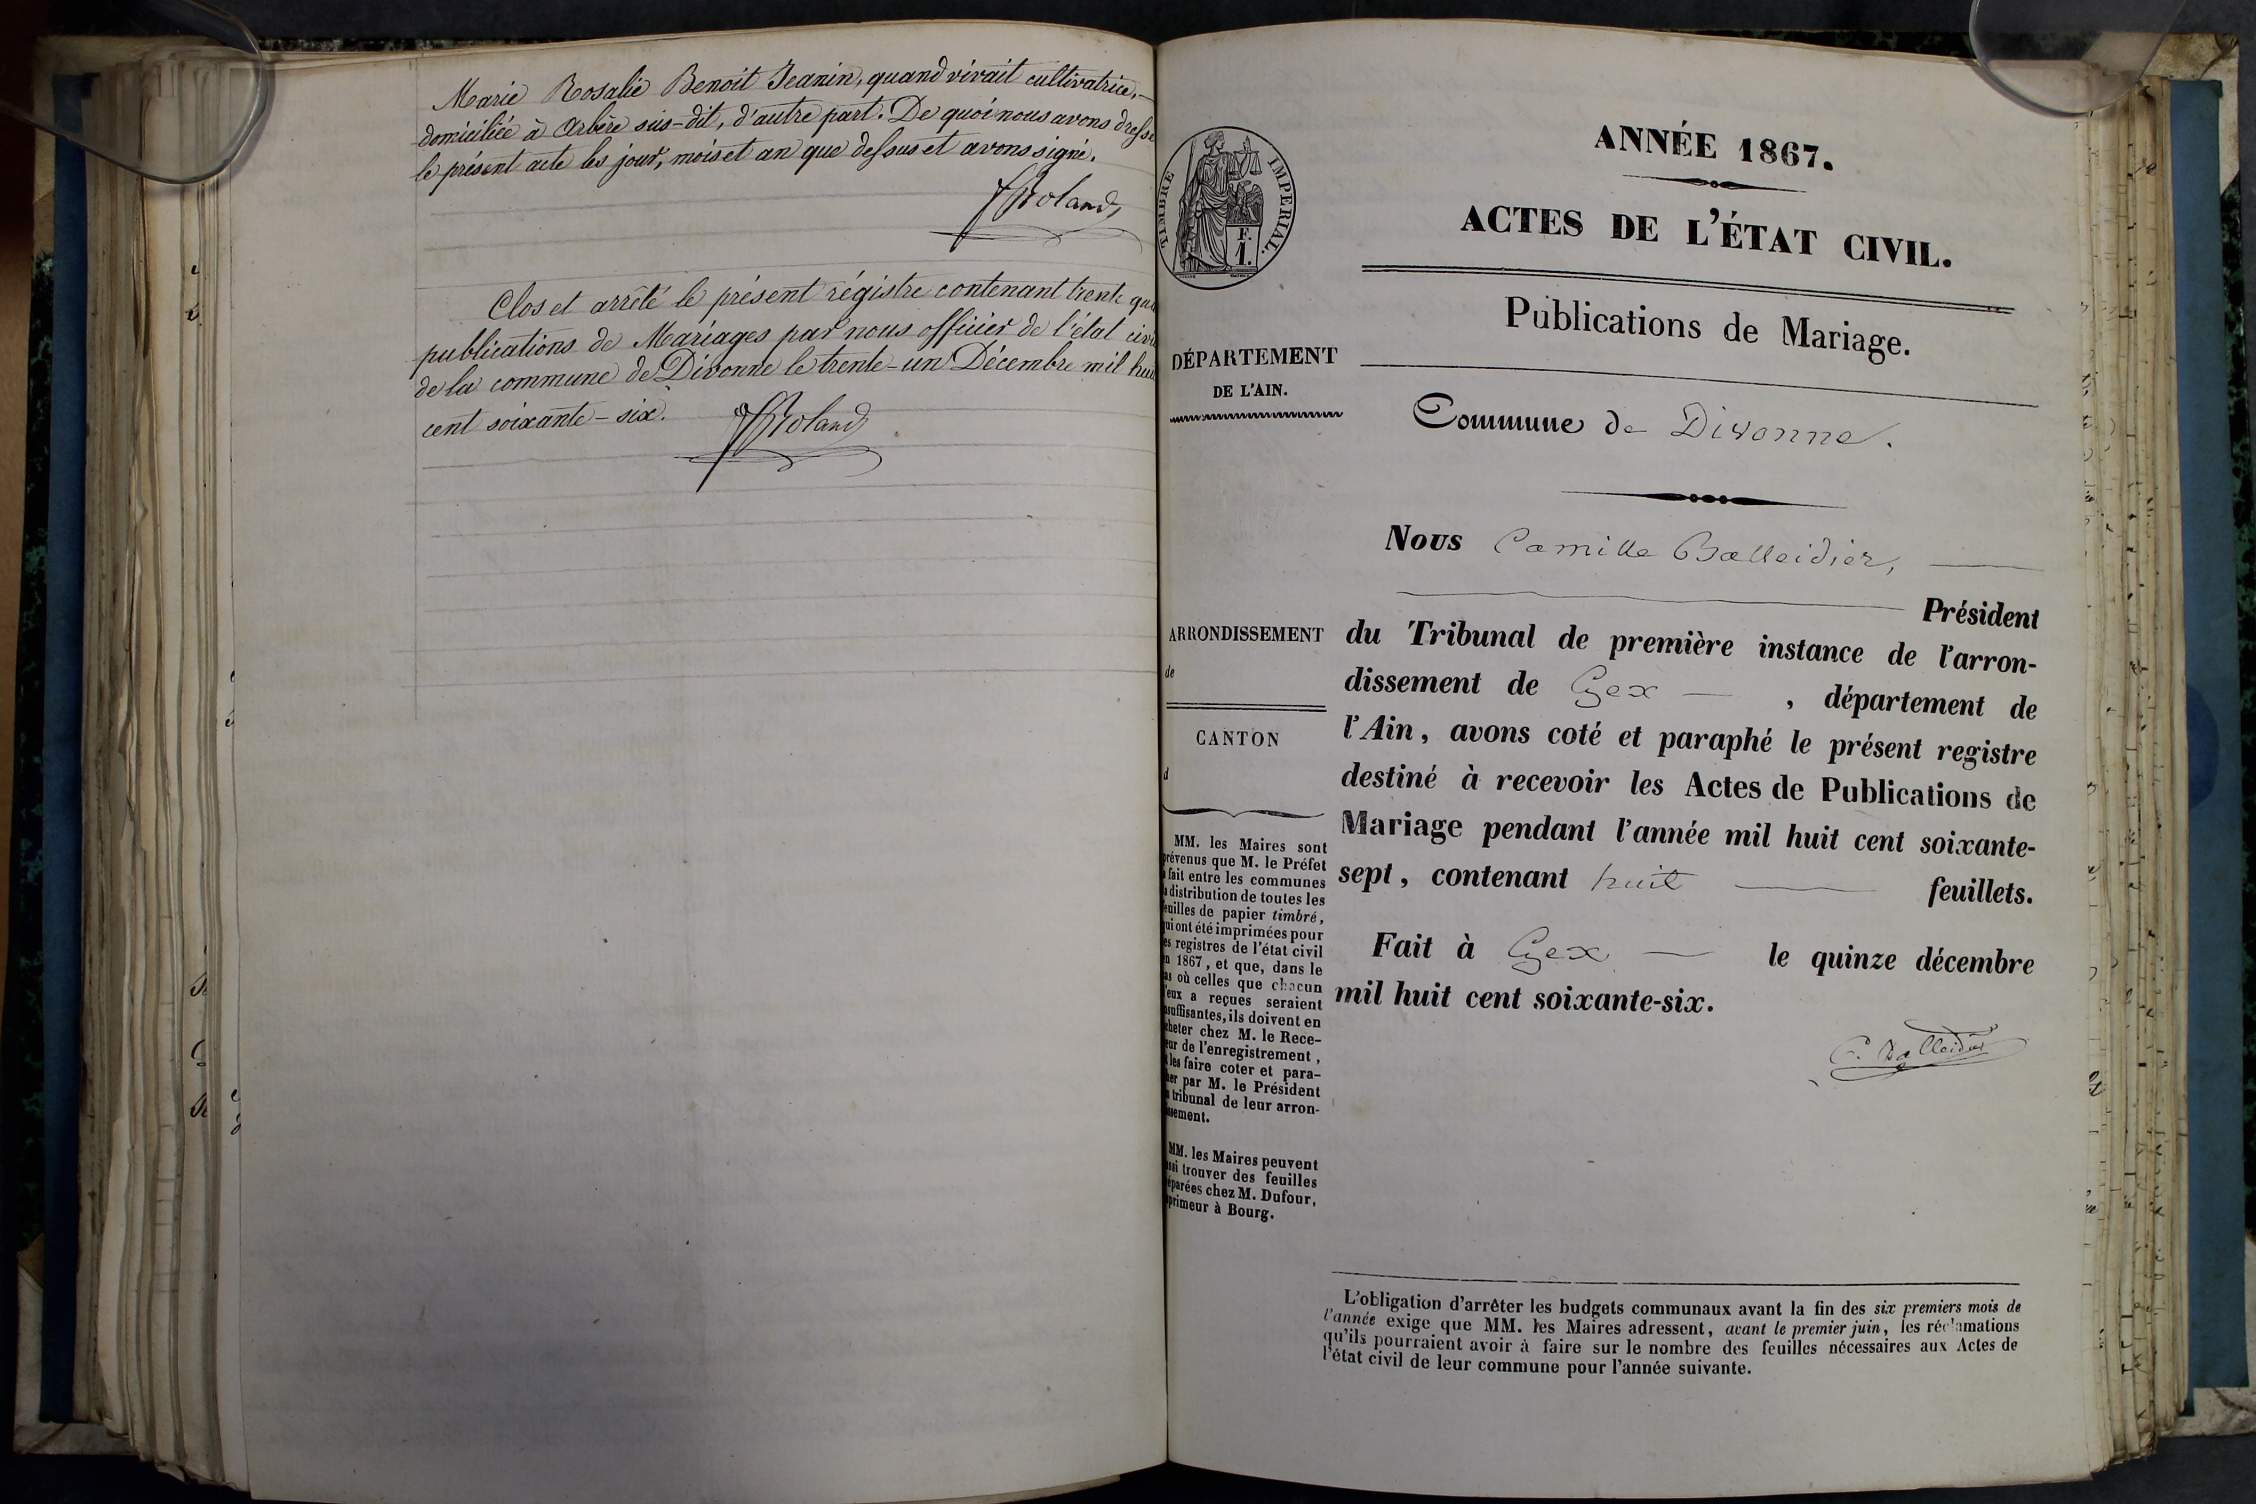 Marie Rosalie Benoit Jeanin, quand vivait cultivatrice,
domiciliée à Arbère sus-dit, d'autre part. De quoi nous avons dressé
le présent acte les jour, mois et an que dessus et avons signé.
Roland
Clos et arrêté le présent régistre contenant trente
publications de Mariages par nous officier de l'état civil
de la commune de Divonne le trente-un Décembre mil huit
cent soixante-six.
Roland
TIMBRE IMPERIAL.
F.
1.
ANNÉE 1867.
ACTES DE L'ÉTAT CIVIL.
Publications de Mariage.
DÉPARTEMENT
DE L'AIN.
Commune de Divonne.
Nous Camille Balleidier,
Président
ARRONDISSEMENT
de
CANTON
d
du Tribunal de première instance de l'arron-
dissement de Gex , département de
l'Ain, avons coté et paraphé le présent registre
destiné à recevoir les Actes de Publications de
Mariage pendant l'année mil huit cent soixante-
sept, contenant huit feuillets.
Fait à Gex le quinze décembre
mil huit cent soixante-six.
C. Balleidier
MM. les Maires sont
prévenus que M. le Préfet
a fait entre les communes
la distribution de toutes les
feuilles de papier timbré,
qui ont été imprimées pour
les registres de l'état civil
en 1867, et que, dans le
cas où celles que chacun
d'eux a reçues seraient
insuffisantes, ils doivent en
acheter chez M. le Rece-
veur de l'enregistrement,
et les faire coter et para-
pher par M. le Président
du tribunal de leur arron-
dissement.
MM. les Maires peuvent
aussi trouver des feuilles
préparées chez M. Dufour,
imprimeur à Bourg.
L'obligation d'arrêter les budgets communaux avant la fin des six premiers mois de
l'année exige que MM. les Maires adressent, avant le premier juin, les réclamations
qu'ils pourraient avoir à faire sur le nombre des feuilles nécessaires aux Actes de
l'état civil de leur commune pour l'année suivante.